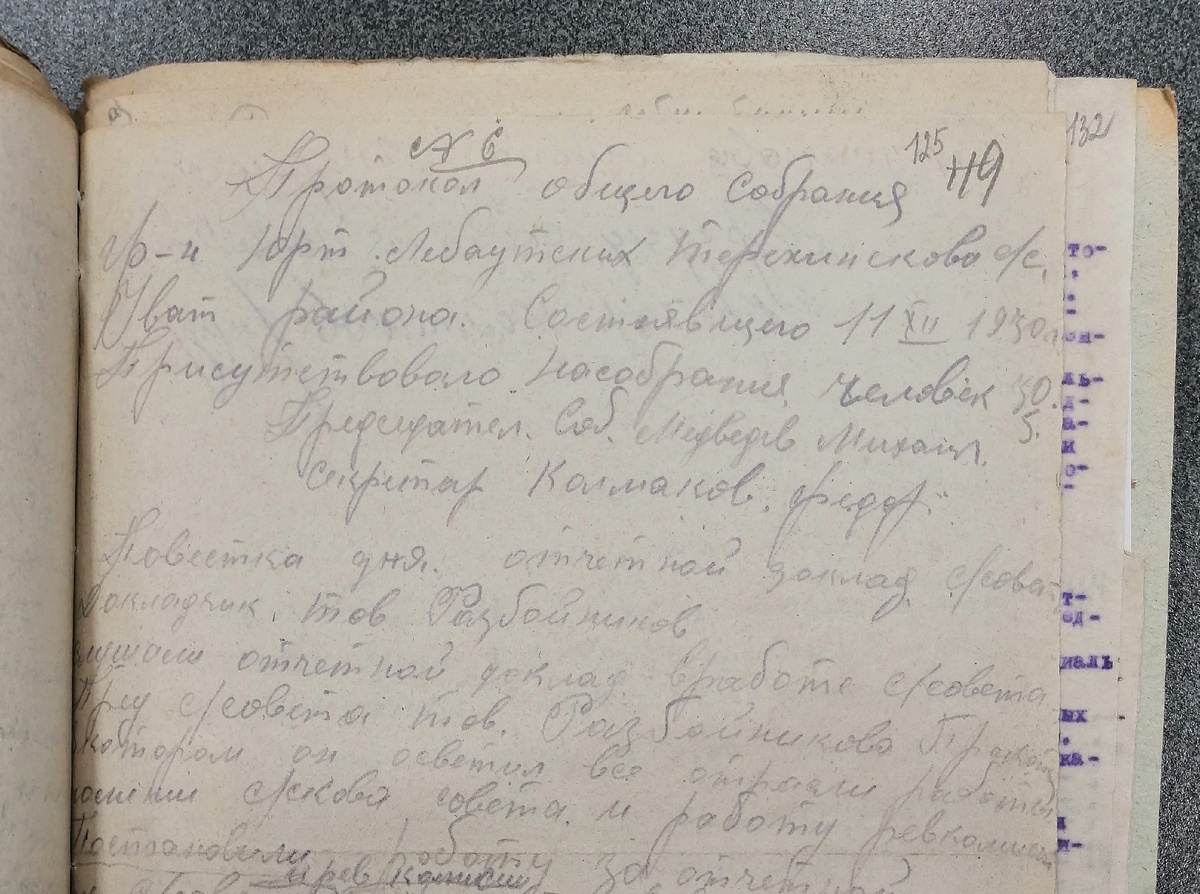 125
132
№ 6
119
Протокол общего собрания
гр-н Юрт Лебаутских Терехинскова с/с.
Уват района. Состоявшего 11 XII 1930г
Присутствовало насобрания человек 30.
5.
Председател. Соб. Медведев Михаил.
Секритар Колмаков. Федор.
Повестка дня. отчетной доклад с/совет
Докладчик тов Разбойников
слушали отчетной доклад вработе с/совета
Пред с/совета тов. Разбойникова
котором он осветил все отрасли работы
совета и работу ревкомисси
Постановили работу за отчетной
то-
д-
а-
и
о-
т-
ед-
иаль
ых
ка-